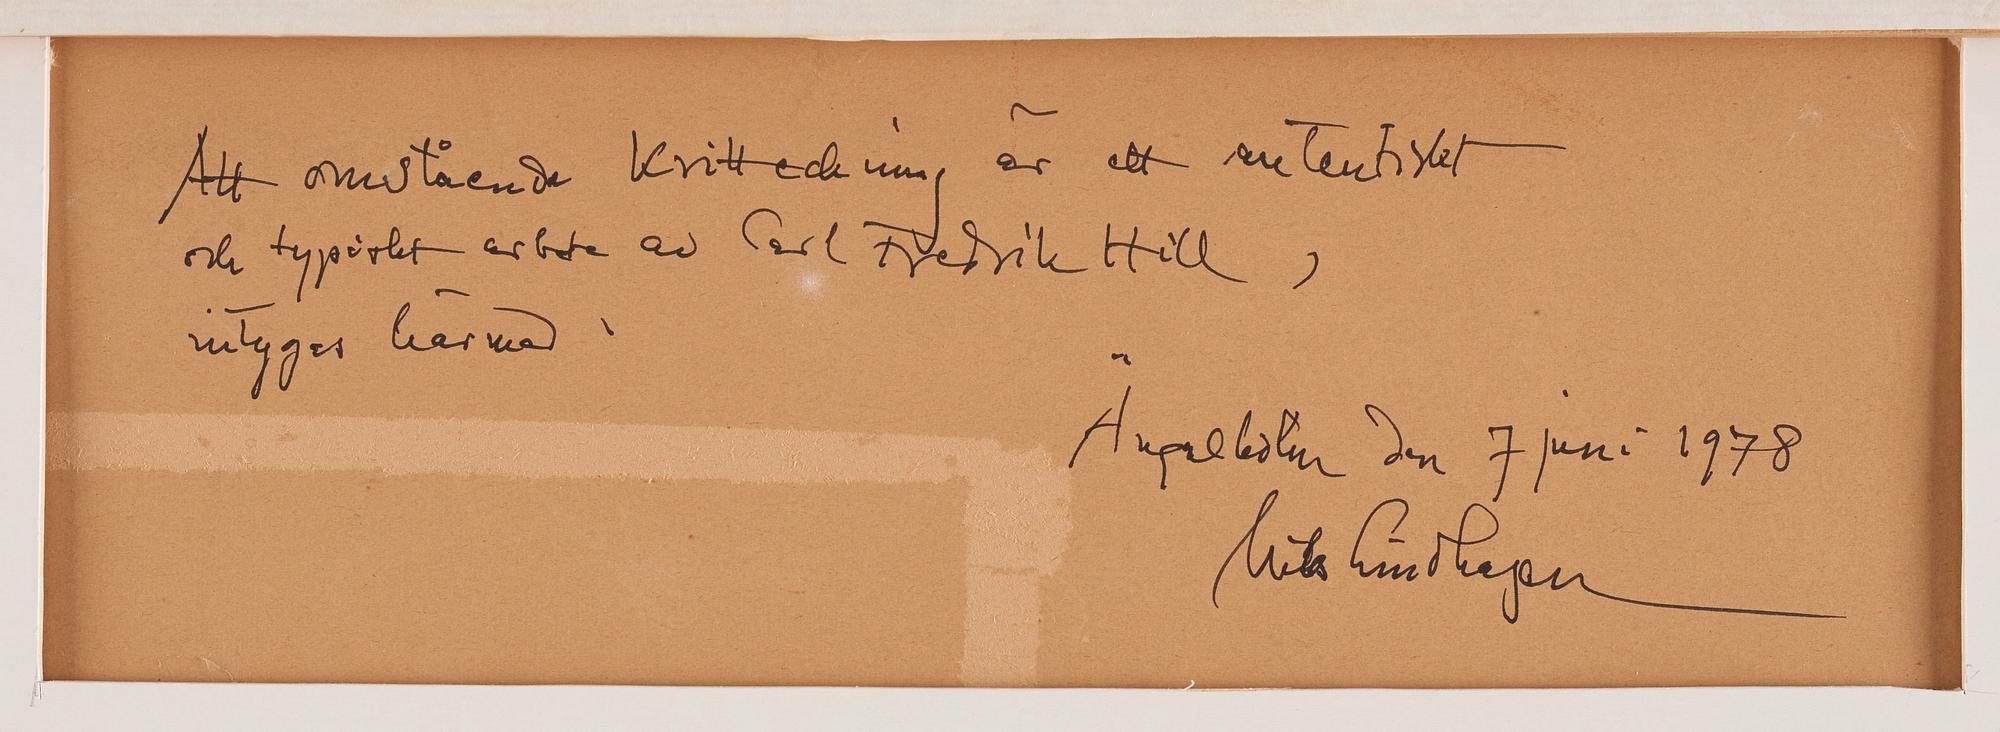 Att omstående kritteckning är ett autentiskt
och typiskt arbete av Carl Fredrik Hill,
intygas härmed:
Ängelholm den 7 juni 1978
Nils Lindhagen